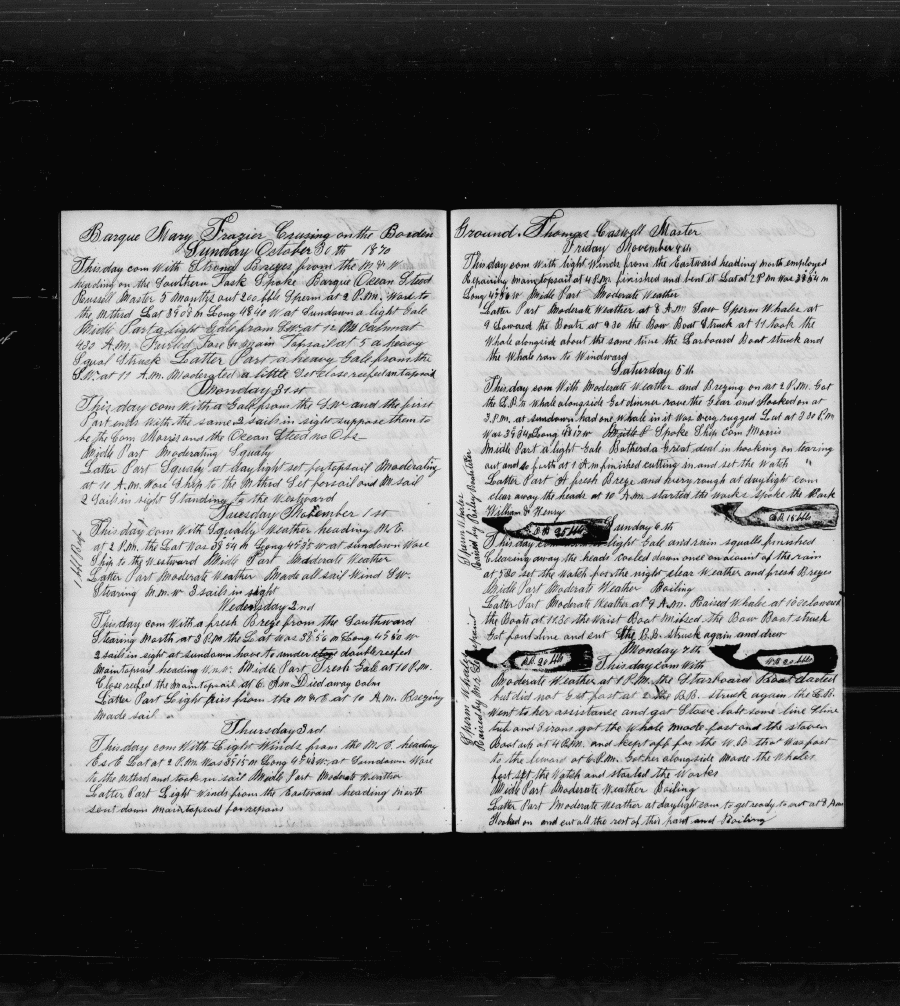 Barque Mary Frazier Crusing on the Borders
Sunday October 30th 1870
This day com With Strong Brezes from the N & W
heading on the Southern Tack Spoke Barque Ocean Steed
Russell Master 5 months out 200 bbls Sperm at 2 P.M. Wore to
the Nthrd Lat 39 08 N Long 48 40 W at Sundown a light Gale
Middle Part a light Gale from SW. at 12 calm at
4 30 A.M. Furled Fore & main Topsail at 5 a heavy
Squal Struck Latter Part a heavy Gale from the
S.W. at 10 A.M. Moderated a little Set Close reefed maintopsail
Monday 31st
This day com With a Gale from the S.W. and the first
Part ends With the same 2 sails in sight suppose them to
be the Com Morris and the Ocean Steed no Obs
Middle Part Moderating Squaly
Latter Part Squaly at daylight set fortopsail Moderating
at 10 A.M. Wore Ship to the Nthrd Set forsail and M sail
2 Sails in sight Standing to the Westward
Tuesday November 1st
This day com With Squally Weather heading N.E.
at 2 P.M. the Lat Was 38°54 N Long 47°35 W at sundown Wore
Ship to the Westward Middle Part Moderate Weather
Latter Part Moderate Weather Made all sail Wind SW.
Stearing N.N.W 3 sails in sight
Wedensday 2nd
This day com With a fresh Breze from the Southward
Stearing North at 3 P.M. the Lat Was 38°56 N Long 48°50 W
2 sails in sight at sundown hove to under double reefed
Maintopsail heading W.N.W. Middle Part Fresh Gale at 10 P.M.
Close reefed the Maintopsail at 6 A.M. Died away calm
Latter Part Light airs from the N & E at 10 A.M. Brezing
Made sail
Thursday 3rd
This day com With Light Winds from the N.E. heading
E.S.E Lat at 2 P.M. Was 39°15 N Long 49°43 W. at Sundown Wore
to the Nthrd and took in sail Middle Part Modrat Weather
Latter Part Light Winds from the Eastward heading north
sent down maintopsail for repairs
Ground. Thomas Caswell Master
Friday November 4th
This day com With light Winds from the Eastward heading North employed
Repairing maintopsail at 4 P.M. finished and bent it Lat at 2 P.M Was 39°34 N
Long W Middle Part Moderate Weather
Latter Part Moderate Weather at 8 A.M. Saw Sperm Whales at
9 Lowared the Boats at 9 30 the Bow Boat Struck at 11 took the
Whale alongside about the same time the Larboard Boat struck and
the Whale ran to Windward
Saturday 5th
This day com With Moderate Weather and Brezing on at 2 P.M. Got
the L.B. to Whale alongside Got dinner rove the Gear and Hooked on at
3 P.M. at sundown had one Whale in it Was very rugged Lat at 3 30 P.M
Was 39°34 Long 48°17 W Spoke Ship Com Morris
Middle Part a light Gale Bothered a Great deal in hooking on tearing
out and so forth at 1 A.m finished cutting in and set the Watch
Latter Part A fresh Breze and very rough at daylight com
clear away the heads at 10 A.M. started the works Spoke the Bark
William & Henry
Sunday 6th
This day light Gale and rain squalls finished
Clearing away the heads cooled down once on account of the rain
at 5 30 set the Watch for the night clear Weather and fresh Brezes
Middle Part Modrat Weather Boiling
Latter Part Moderate Weather at 9 A.M. Raised Whales at 10 Lowared
the Boats at 11.30 the Waist Boat Missed the Bow Boat struck
Got foul line and cut the B.B. struck again and drew
Monday 7th
This day com With
Moderate Weather at 1 P.M. the Starboard Boat started
but did not Get fast at 2 B.B. struck again the S.B.
Went to her assistance and got Stove lost some line
and 3 irons got the Whale made fast and the stoven
Boat up at 4 P.M. and kept off for the W.B. that Was fast
to the leward at 6 P.M. Got her alongside Made the Whales
fast Set the Watch and started the Works
Midle Part Moderate Weather Boiling
Latter Part Moderate Weather at daylight com to get ready to cut at 8 A.m
Hooked on and cut all the rest of this part and Boiling